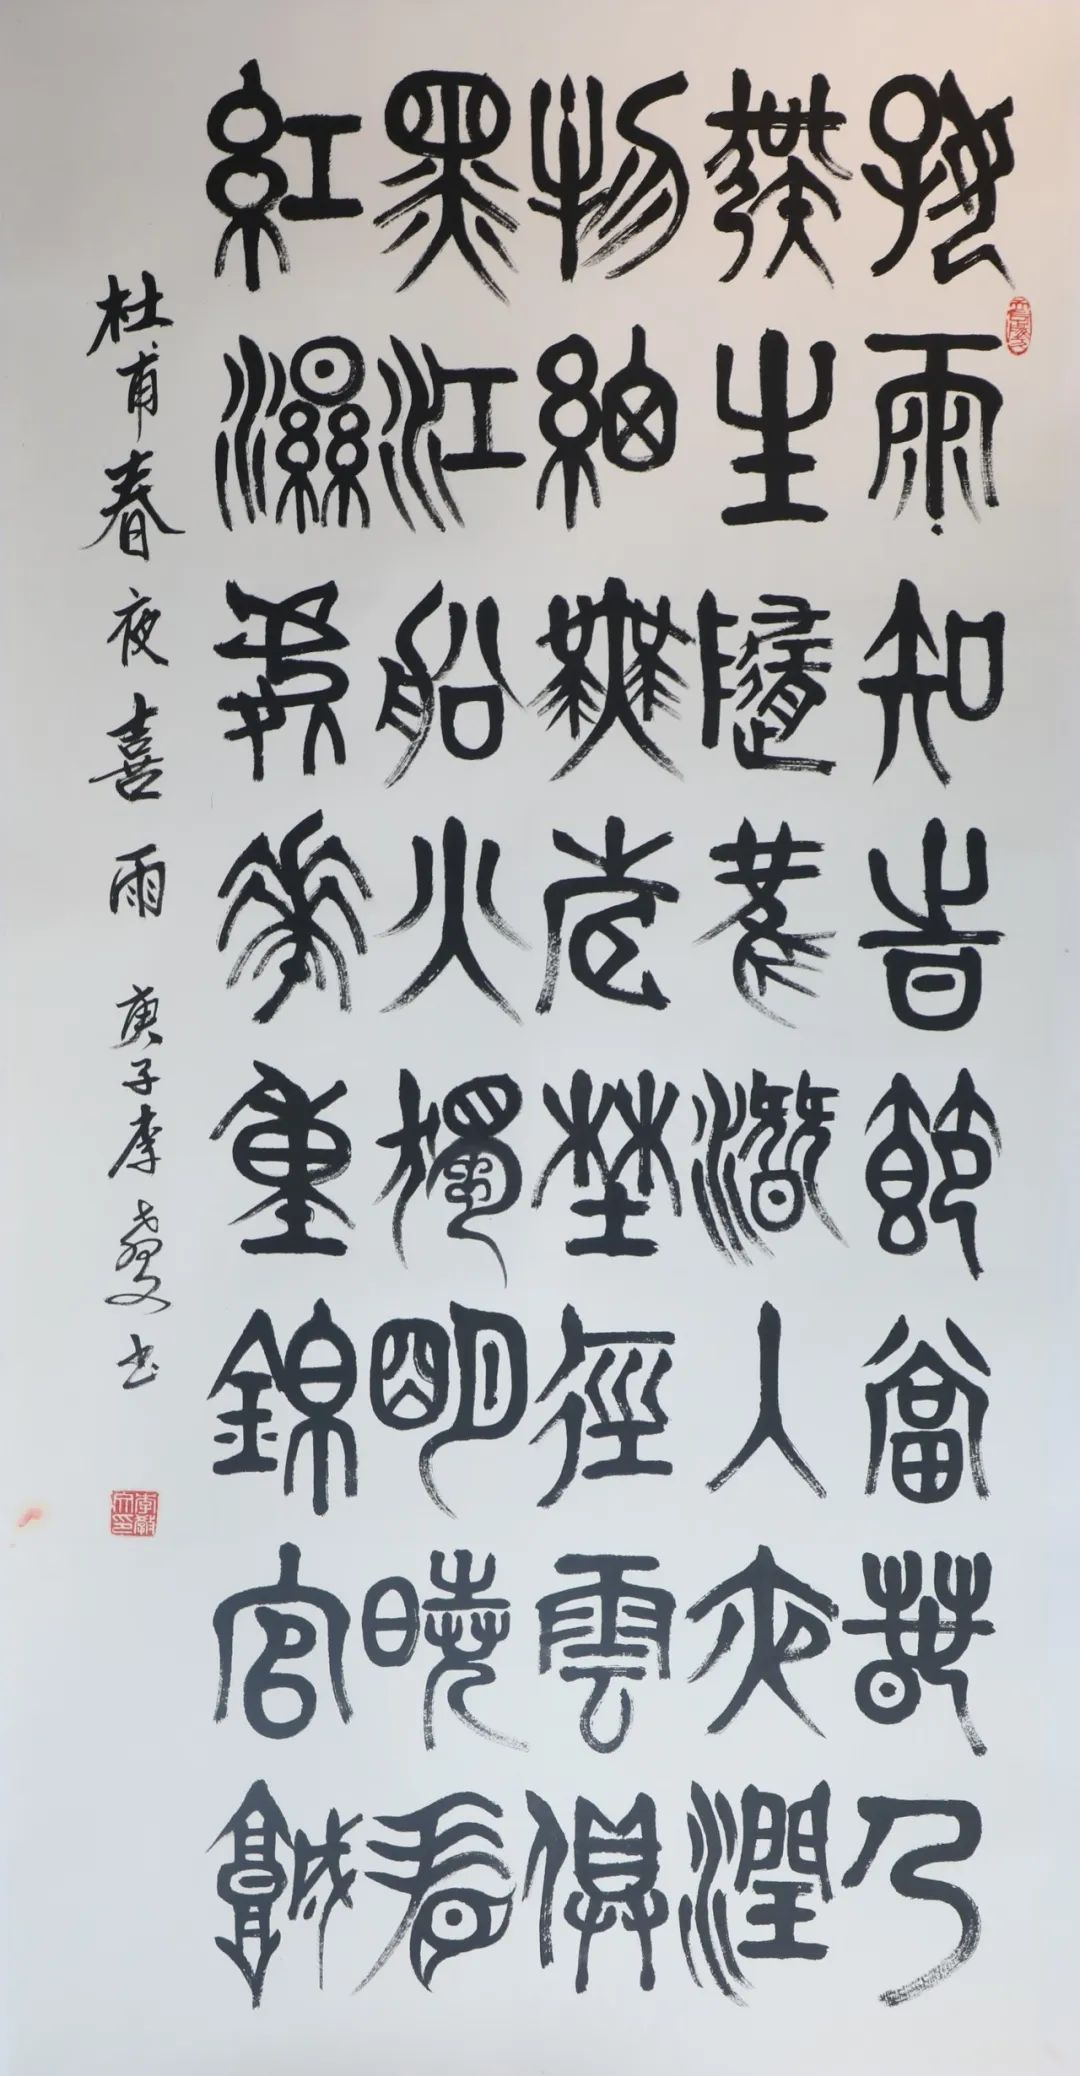 好雨知旹節當萅乃
發生隨風潛入夜潤
物細無聲埜徑雲俱
黑江船火獨朙曉看
紅濕處花重錦官城
杜甫春夜喜雨 庚子李教书